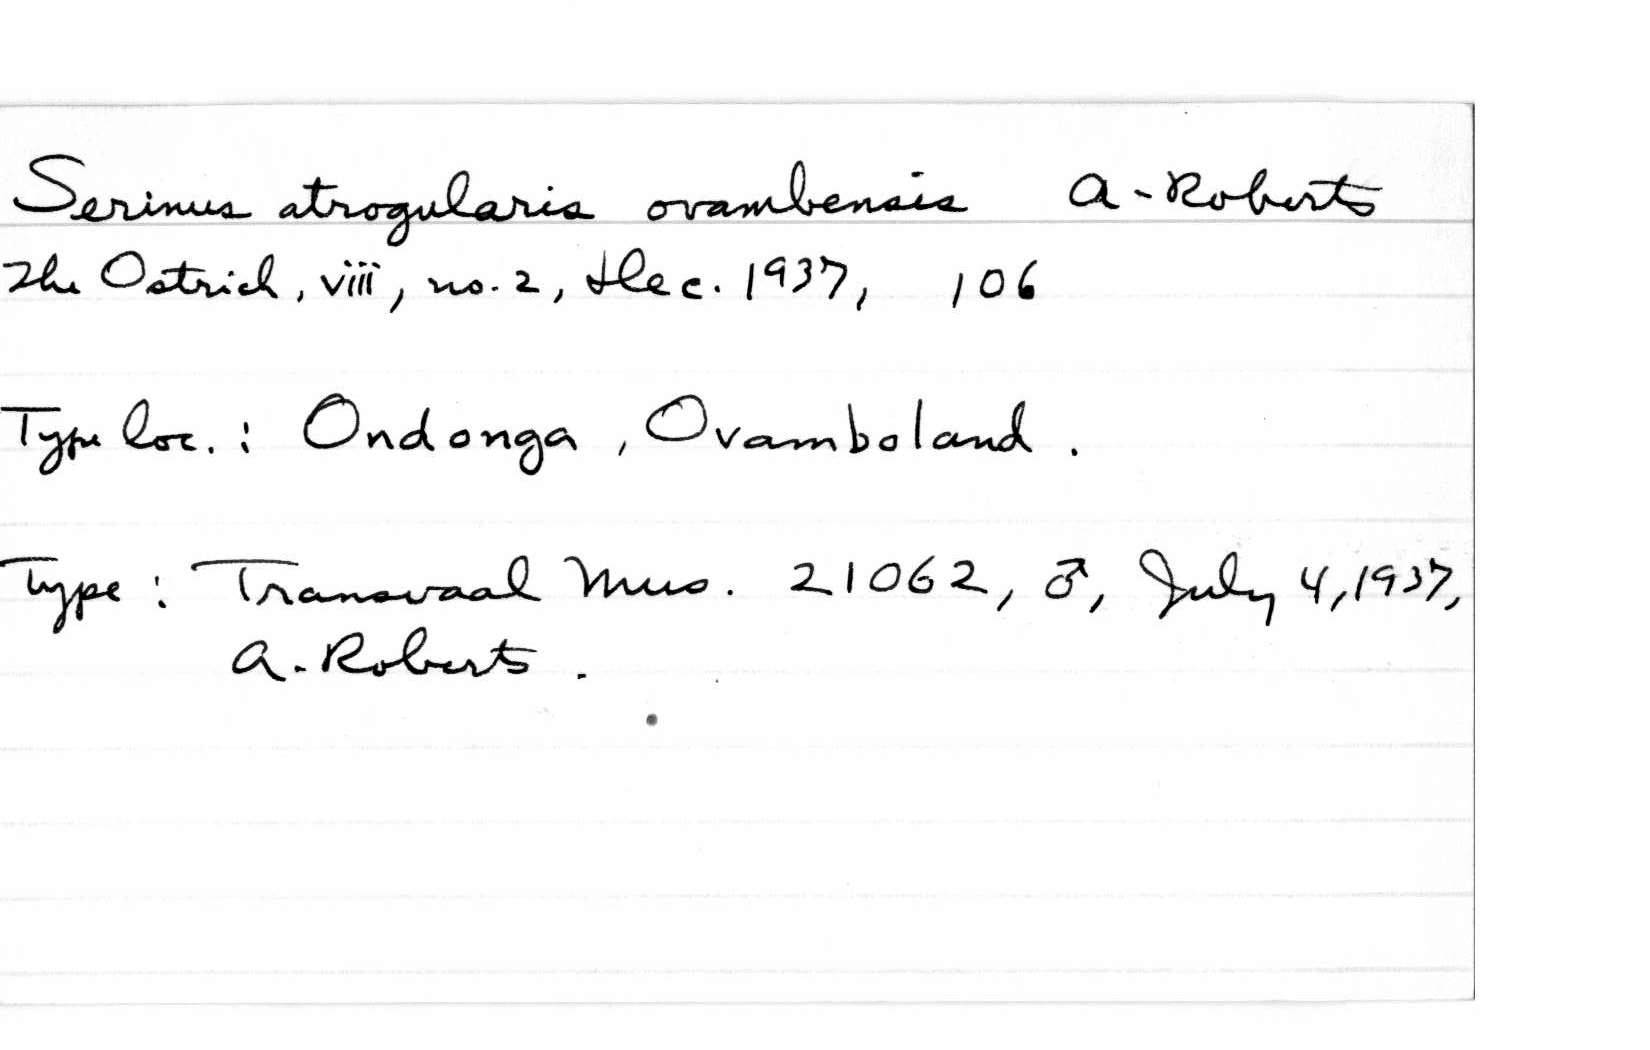 Serinus atrogularis ovambensis A. Roberts
The Ostrich, viii, no. 2, Dec. 1937, 106
Type loc. : Ondonga, Ovamboland.
Type : Transvaal Mus. 21062, ♂, July 4, 1937,
A. Roberts.